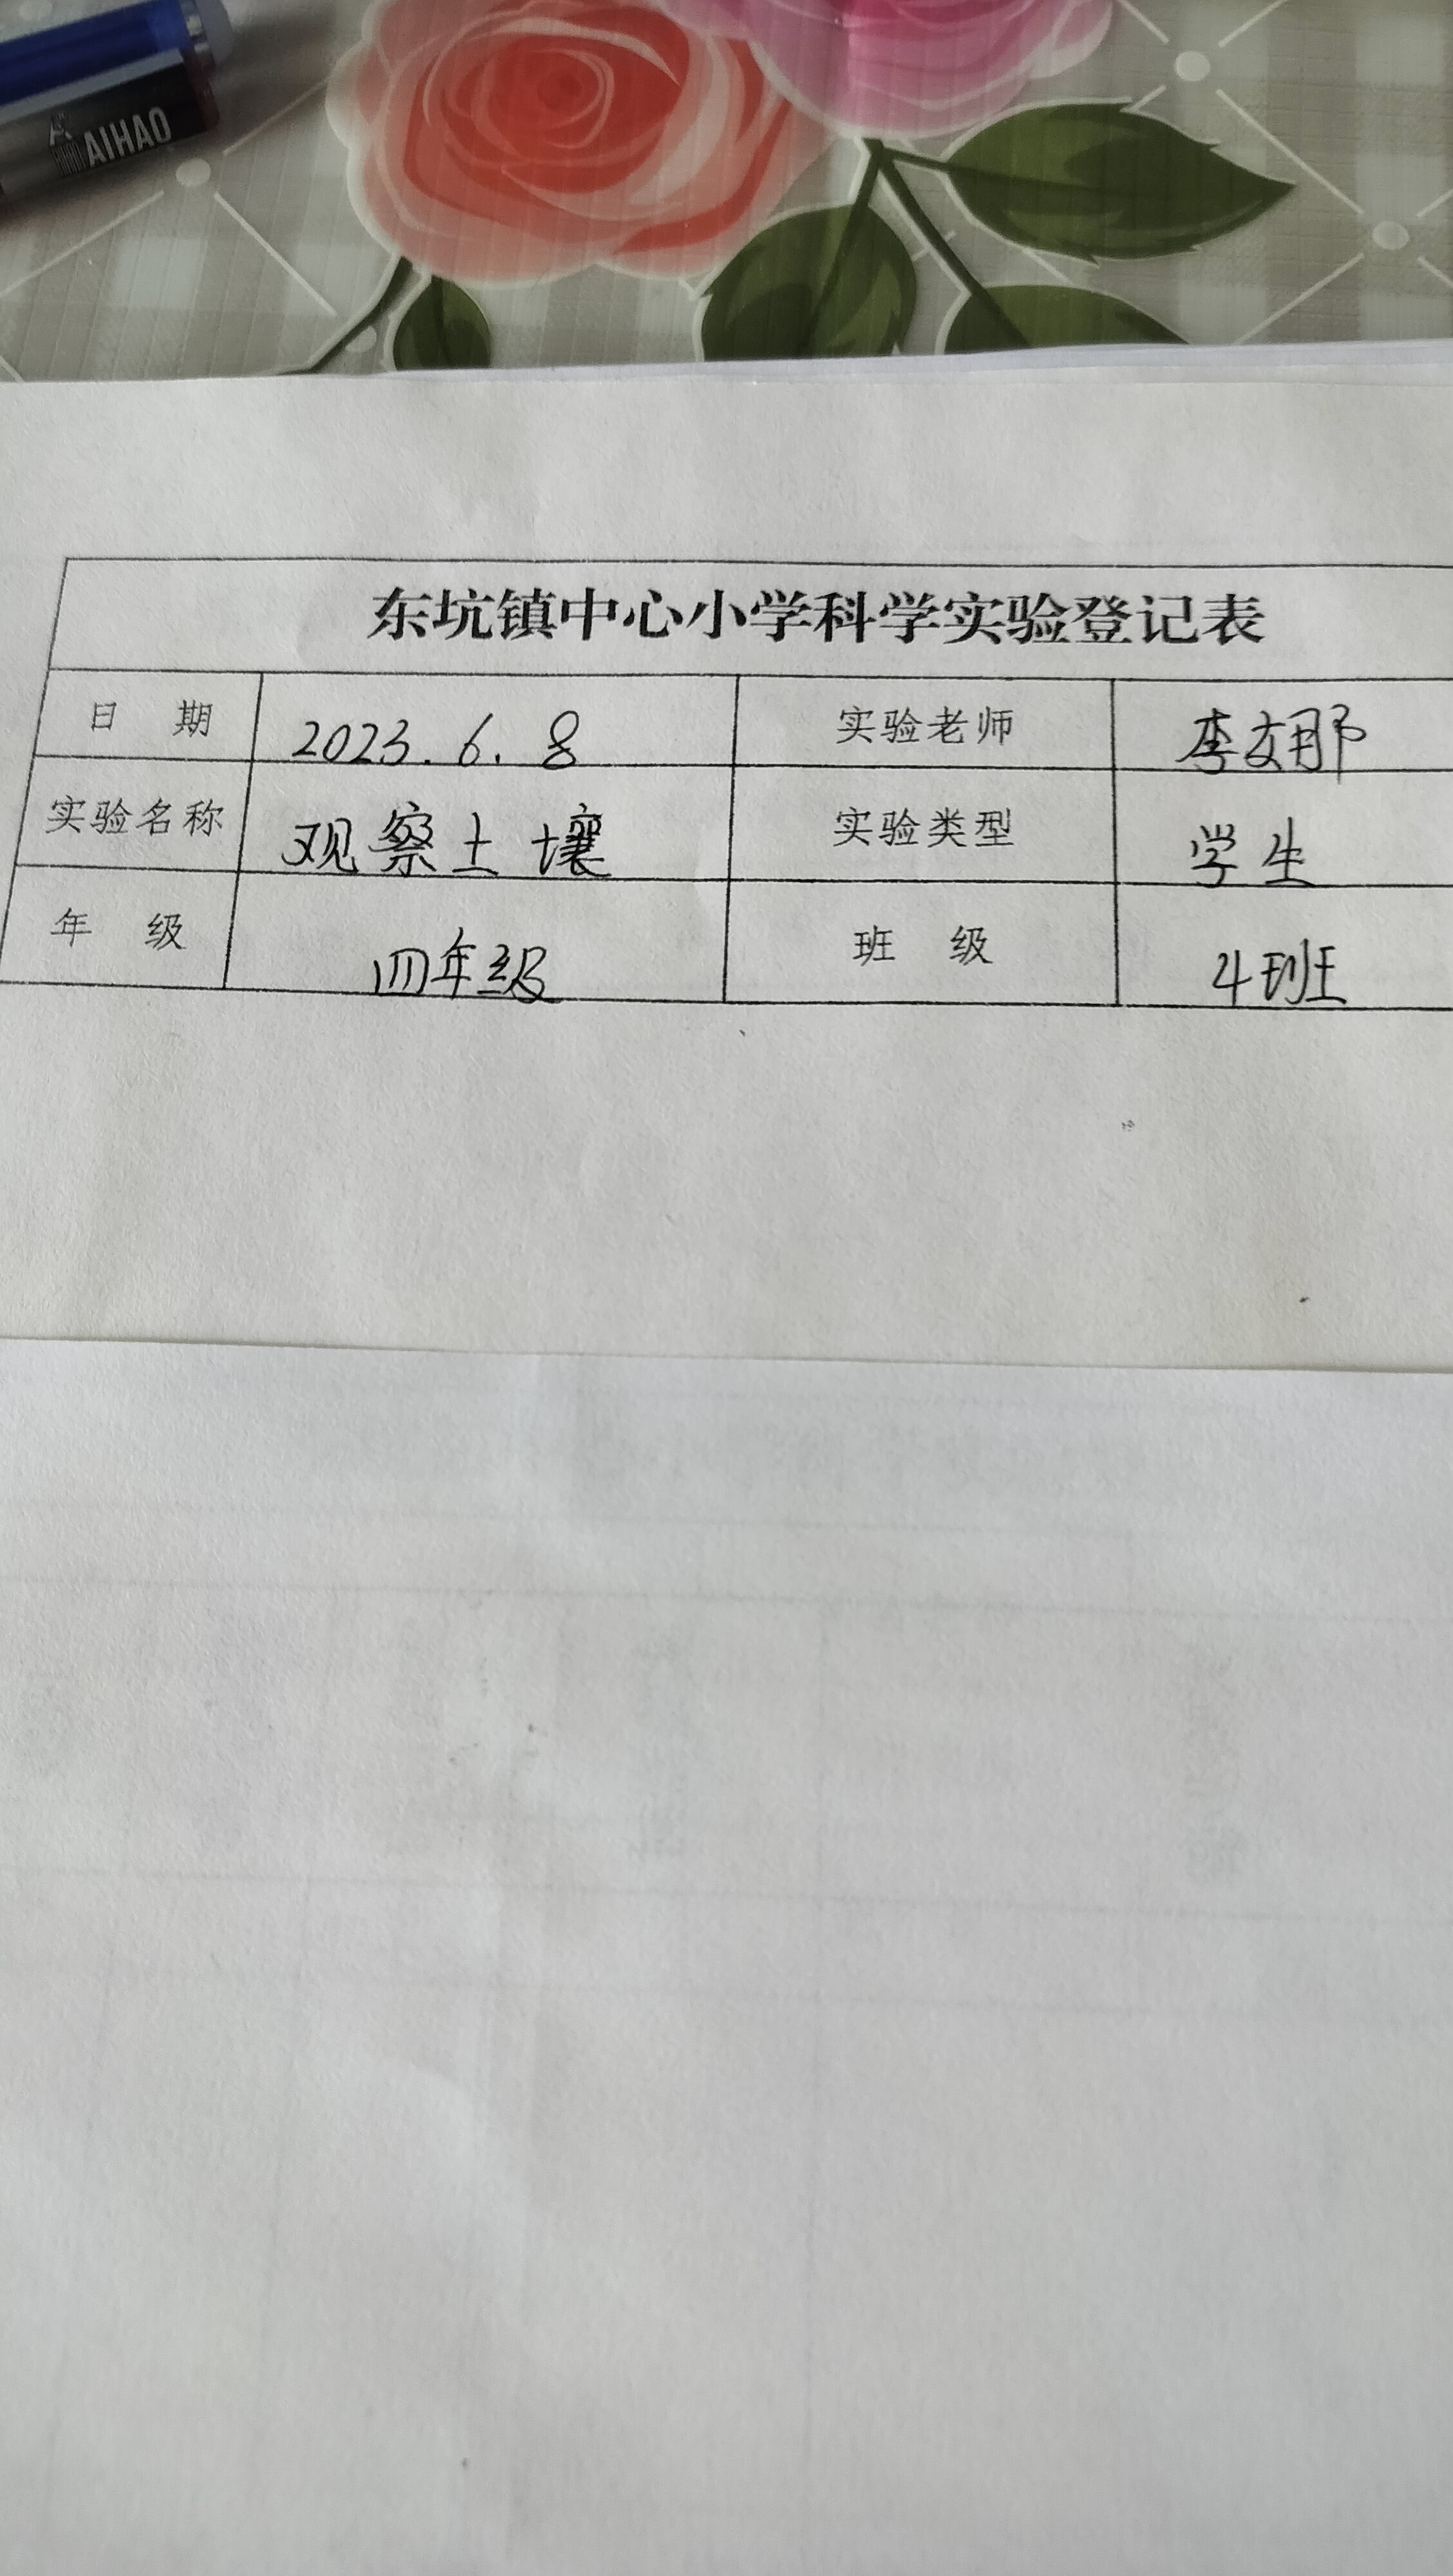 AIHAO
东坑镇中心小学科学实验登记表
日 期 2023.6.8 实验老师 李
实验名称 观察土壤 实验类型 学生
年 级 四年级 班 级 4班